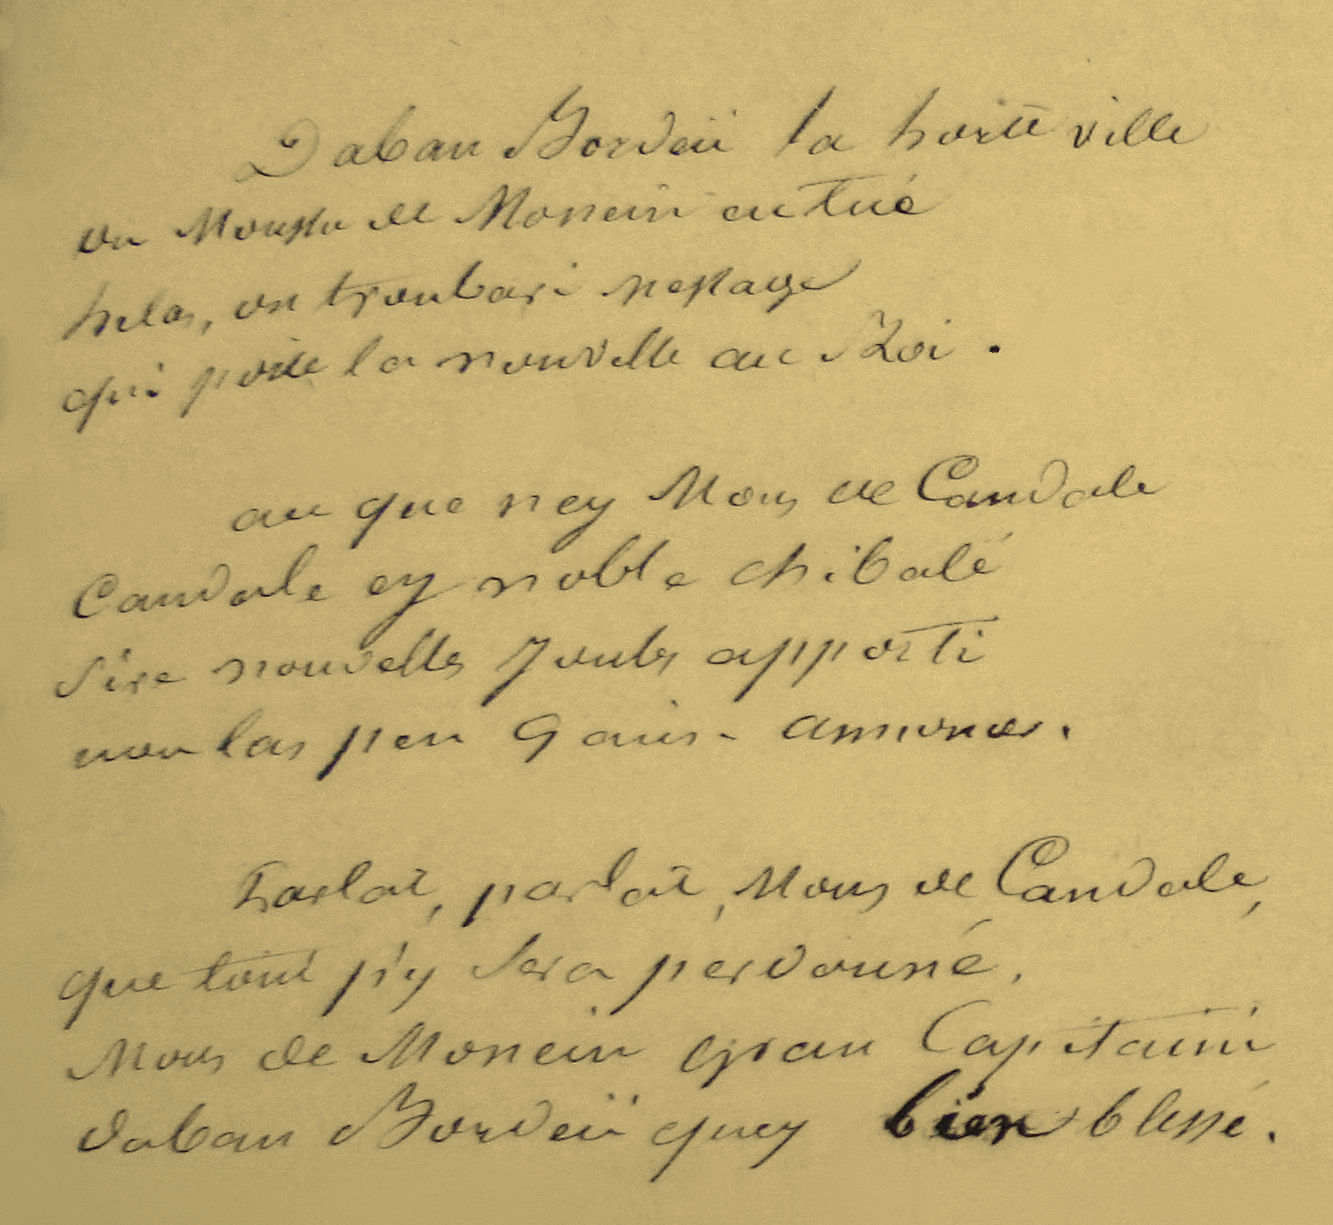 Daban Bordeü la horte ville
un Moussu de Monein an tué
helas, on troubari message
qui porte la nouvelle au Roi.
au que n'ey Mous de Candale
Candale ey noble chibalé
Sire nouvelles j'aubs apporti
nou las pen gaüs annonce.
Parlat, parlat, Mous de Candale,
que tout p'y sera perdouné.
Mous de Monein gran Capitaini
daban Bordeü quey bien blessé.